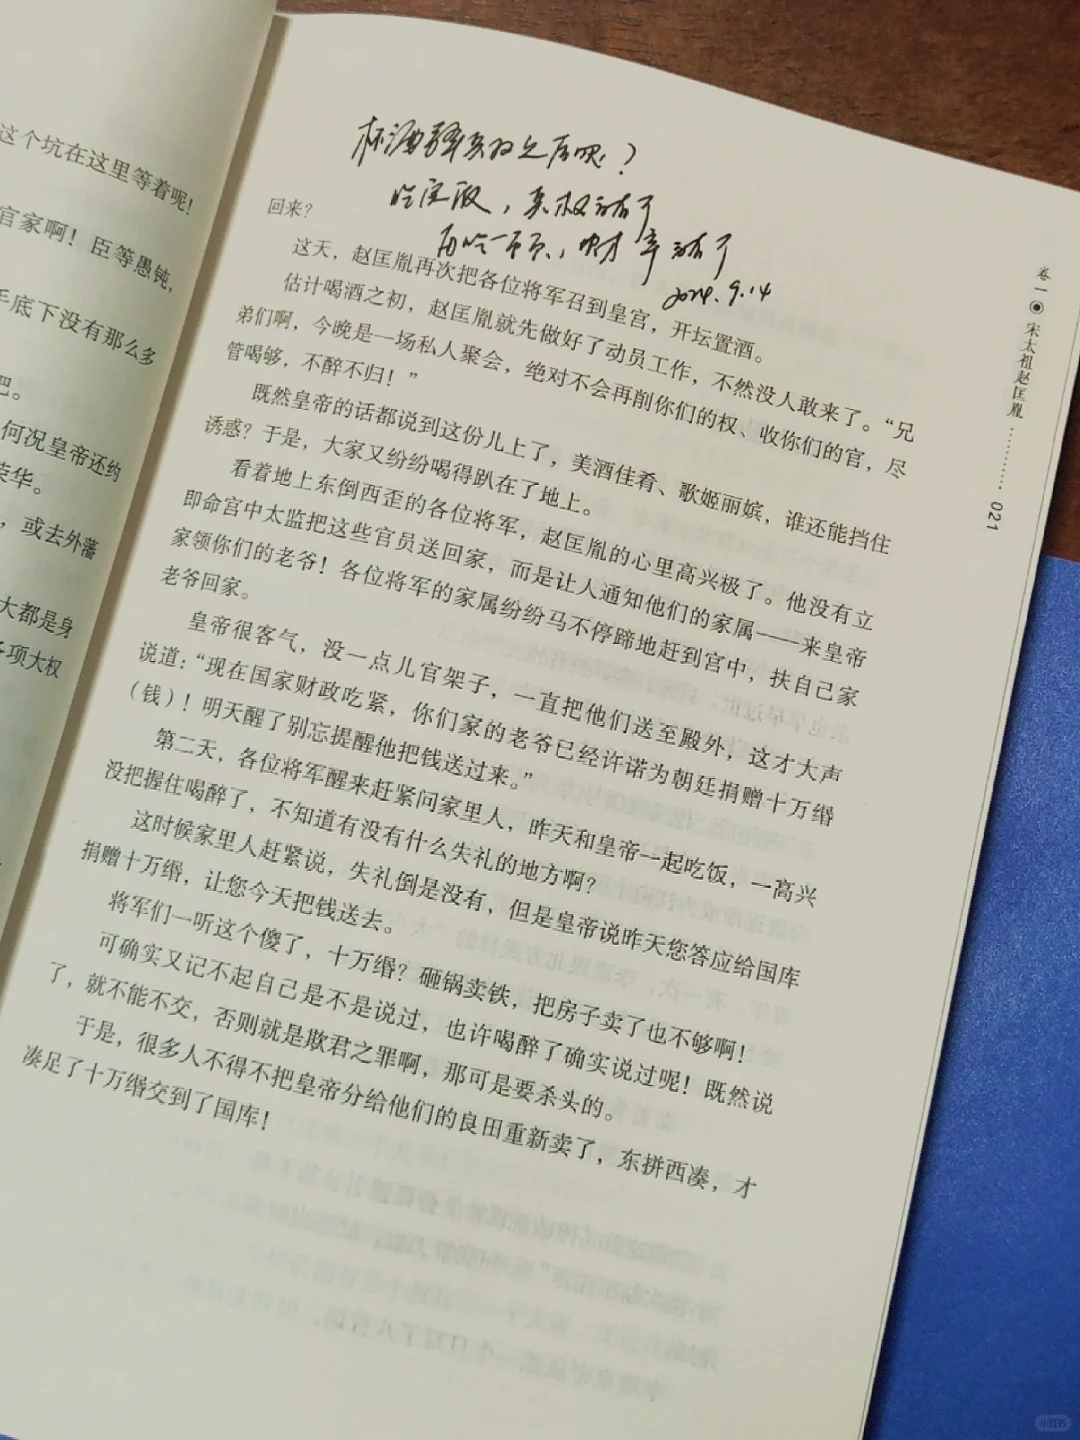 这个坑在这里等着呢!
官家啊!臣等愚钝,
手底下没有那么多
吧。
何况皇帝还约
荣华。
,或去外藩
大都是身
各项大权
杯酒释兵权之后呢?
吃完饭,兵权没有了
再吃一顿,财产没有了
2024.9.14
回来?
这天,赵匡胤再次把各位将军召到皇宫,开坛置酒。
估计喝酒之初,赵匡胤就先做好了动员工作,不然没人敢来了。“兄
弟们啊,今晚是一场私人聚会,绝对不会再削你们的权、收你们的官,尽
管喝够,不醉不归!”
既然皇帝的话都说到这份儿上了,美酒佳肴、歌姬丽嫔,谁还能挡住
诱惑?于是,大家又纷纷喝得趴在了地上。
看着地上东倒西歪的各位将军,赵匡胤的心里高兴极了。他没有立
即命宫中太监把这些官员送回家,而是让人通知他们的家属——来皇帝
家领你们的老爷!各位将军的家属纷纷马不停蹄地赶到宫中,扶自己家
老爷回家。
皇帝很客气,没一点儿官架子,一直把他们送至殿外,这才大声
说道:“现在国家财政吃紧,你们家的老爷已经许诺为朝廷捐赠十万缗
(钱)!明天醒了别忘提醒他把钱送过来。”
第二天,各位将军醒来赶紧问家里人,昨天和皇帝一起吃饭,一高兴
没把握住喝醉了,不知道有没有什么失礼的地方啊?
这时候家里人赶紧说,失礼倒是没有,但是皇帝说昨天您答应给国库
捐赠十万缗,让您今天把钱送去。
将军们一听这个傻了,十万缗?砸锅卖铁,把房子卖了也不够啊!
可确实又记不起自己是不是说过,也许喝醉了确实说过呢!既然说
了,就不能不交,否则就是欺君之罪啊,那可是要杀头的。
于是,很多人不得不把皇帝分给他们的良田重新卖了,东拼西凑,才
凑足了十万缗交到了国库!
卷一 ◉ 宋太祖赵匡胤 ………… 021
小红书